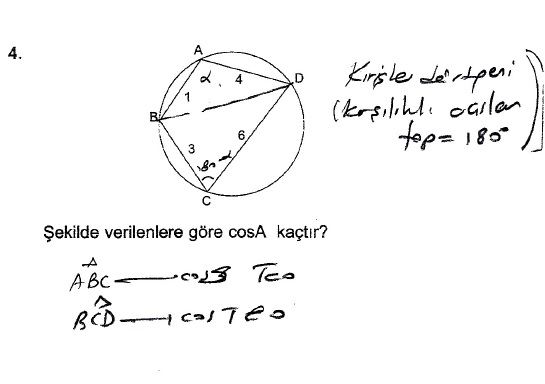 4.
A
α
4
D
1
B
3
6
80-α
C
Kirişler dörtgeni
(karşılıklı açıları
top = 180°
Şekilde verilenlere göre cosA kaçtır?
ABC cos Teo
BCD cos Teo